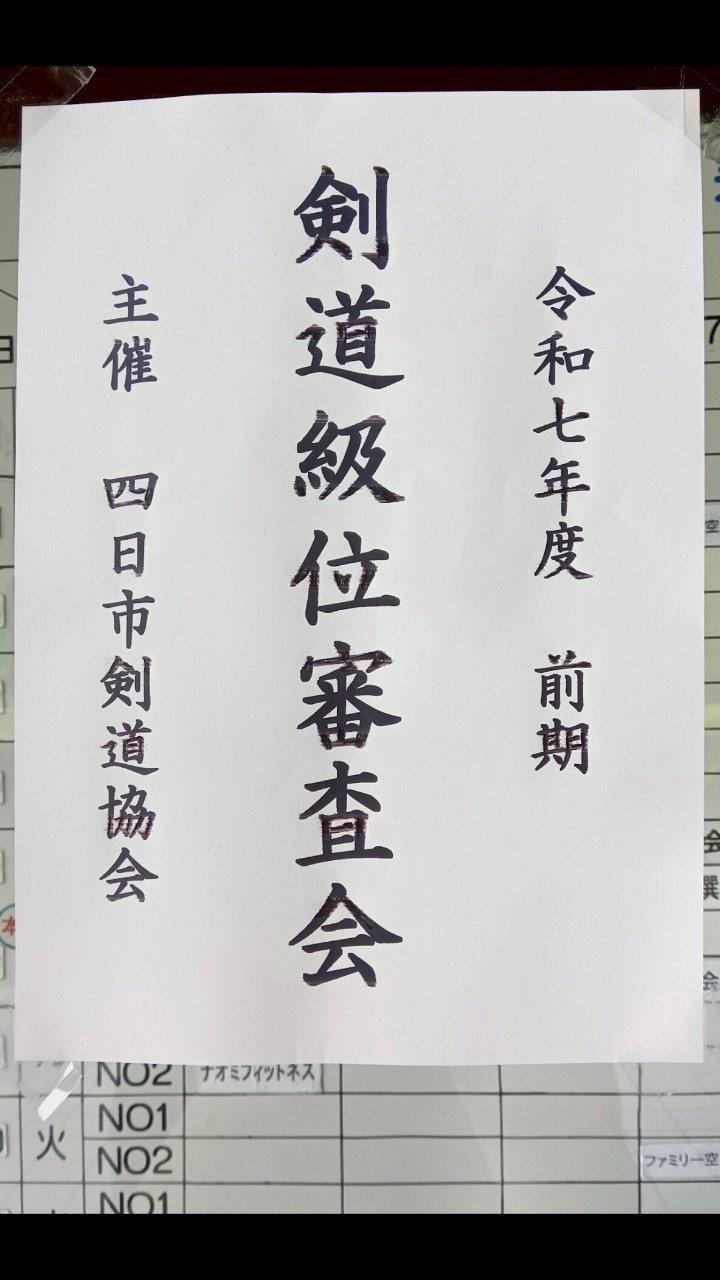 令和七年度 前期
剣道級位審査会
主催 四日市剣道協会
NO2 ナオミフィットネス
火 NO1
NO2 ファミリー空
NO1